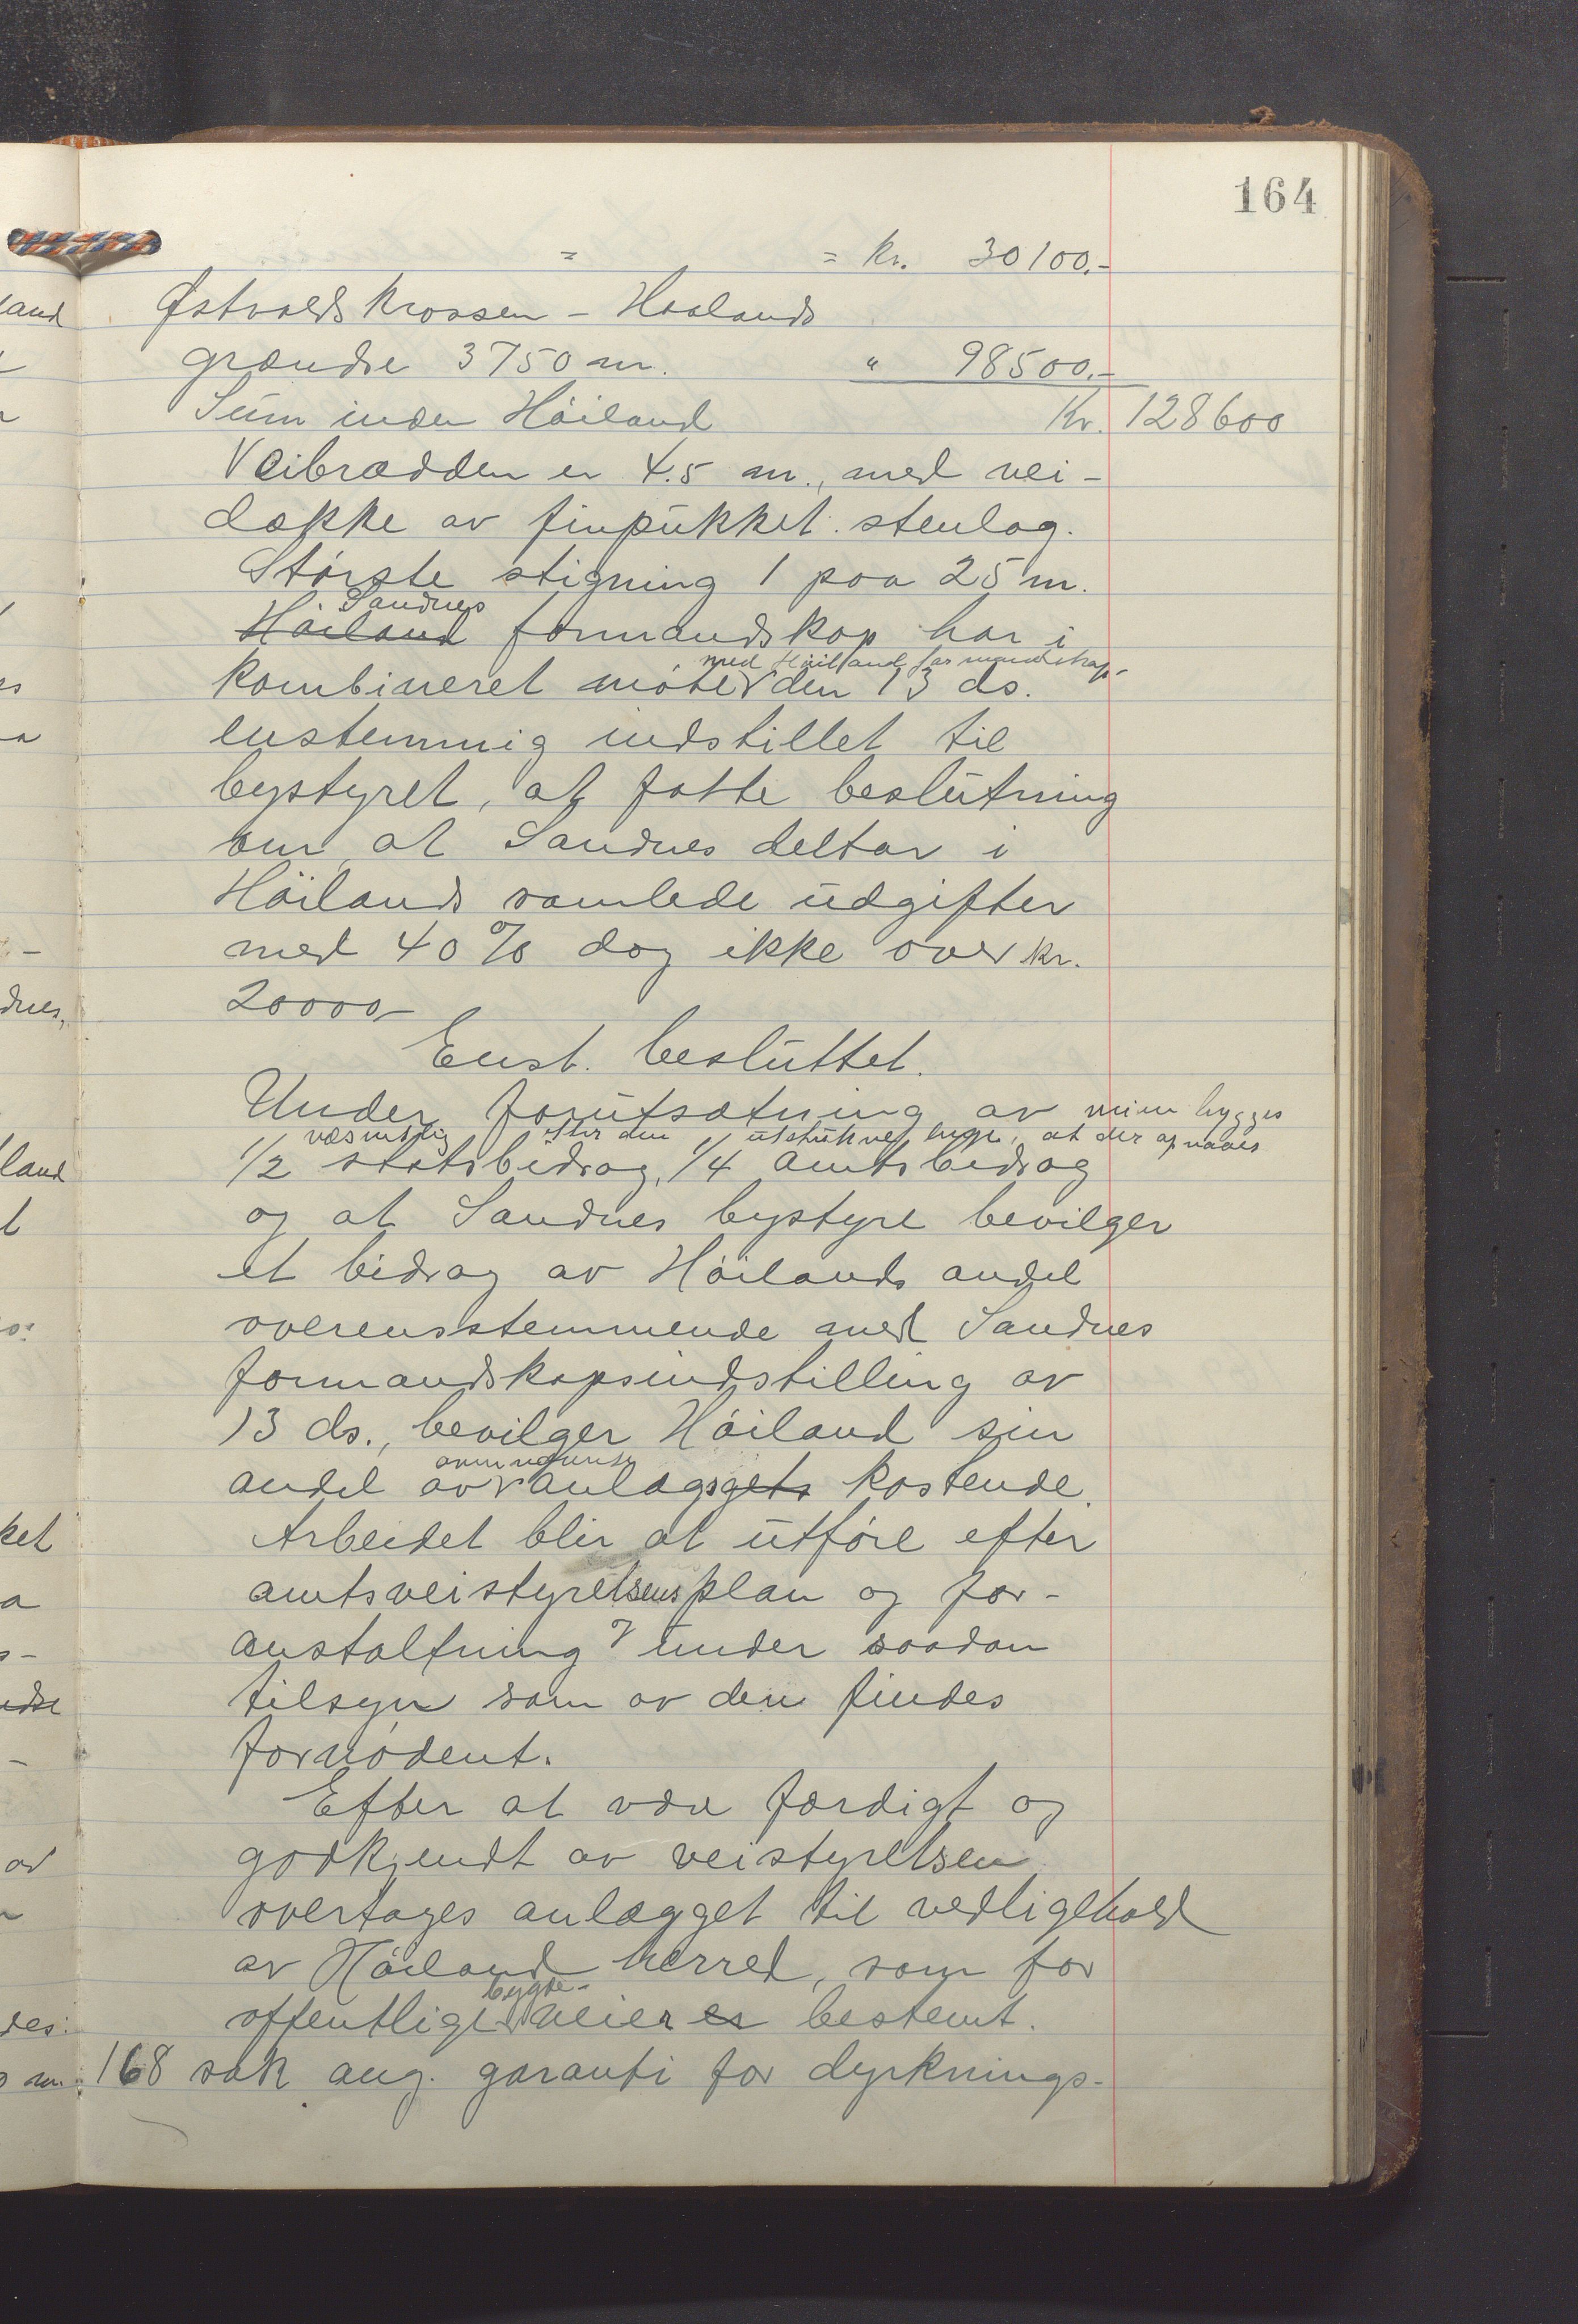 164
= = kr. 30100.-
Østvoldskrossen - Haalands
grændse 3750 m. " 98500.-
Sum inden Höiland Kr. 128600
Veibrædden er 4.5 m., med vei-
dække av finpukket stenlag.
Störste stigning 1 paa 25 m.
Sandnes
Höiland formandskap har i
med Höiland formandskap
kombineret möte den 13 ds.
enstemmig indstillet til
bystyret, at fatte beslutning
om at Sandnes deltar i
Höilands samlede udgifter
med 40 % dog ikke over kr.
20000,-
Enst. besluttet.
Under forutsætning av veien bygges
væsentlig efter den utstukne linje, at der opnaaes
1/2 statsbidrag, 1/4 amtsbidrag
og at Sandnes bystyre bevilger
et bidrag av Höilands andel
overensstemmende med Sandnes
formandskapsindstilling av
13 ds., bevilger Höiland sin
andel av anlægsgets kostende.
Arbeidet blir at utföre efter
amtsveistyrelsens plan og for-
anstaltning & under saadan
tilsyn som av den findes
fornödent.
Efter at være færdigt og
godkjendt av veistyrelsen
overtages anlægget til vedligehold
av Höiland herred, som for
bygde-
offentlige veier er bestemt.
168 sak ang. garanti for dyrknings-